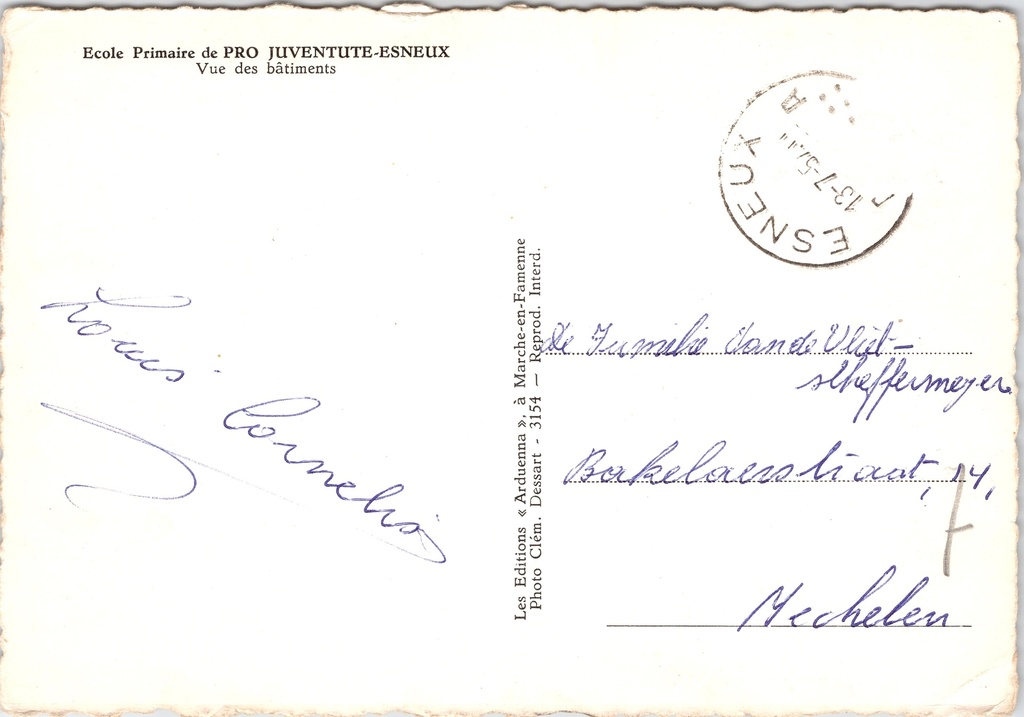 Ecole Primaire de PRO JUVENTUTE-ESNEUX
Vue des bâtiments
ESNEUX
A
13-7-57
Louis Cornelis
Les Editions « Arduenna », à Marche-en-Famenne
Photo Clém. Dessart - 3154 — Reprod. Interd.
De Familie Van de Vliet-
scheffermeyer
Bakelaerstraat, 14,
7
Mechelen